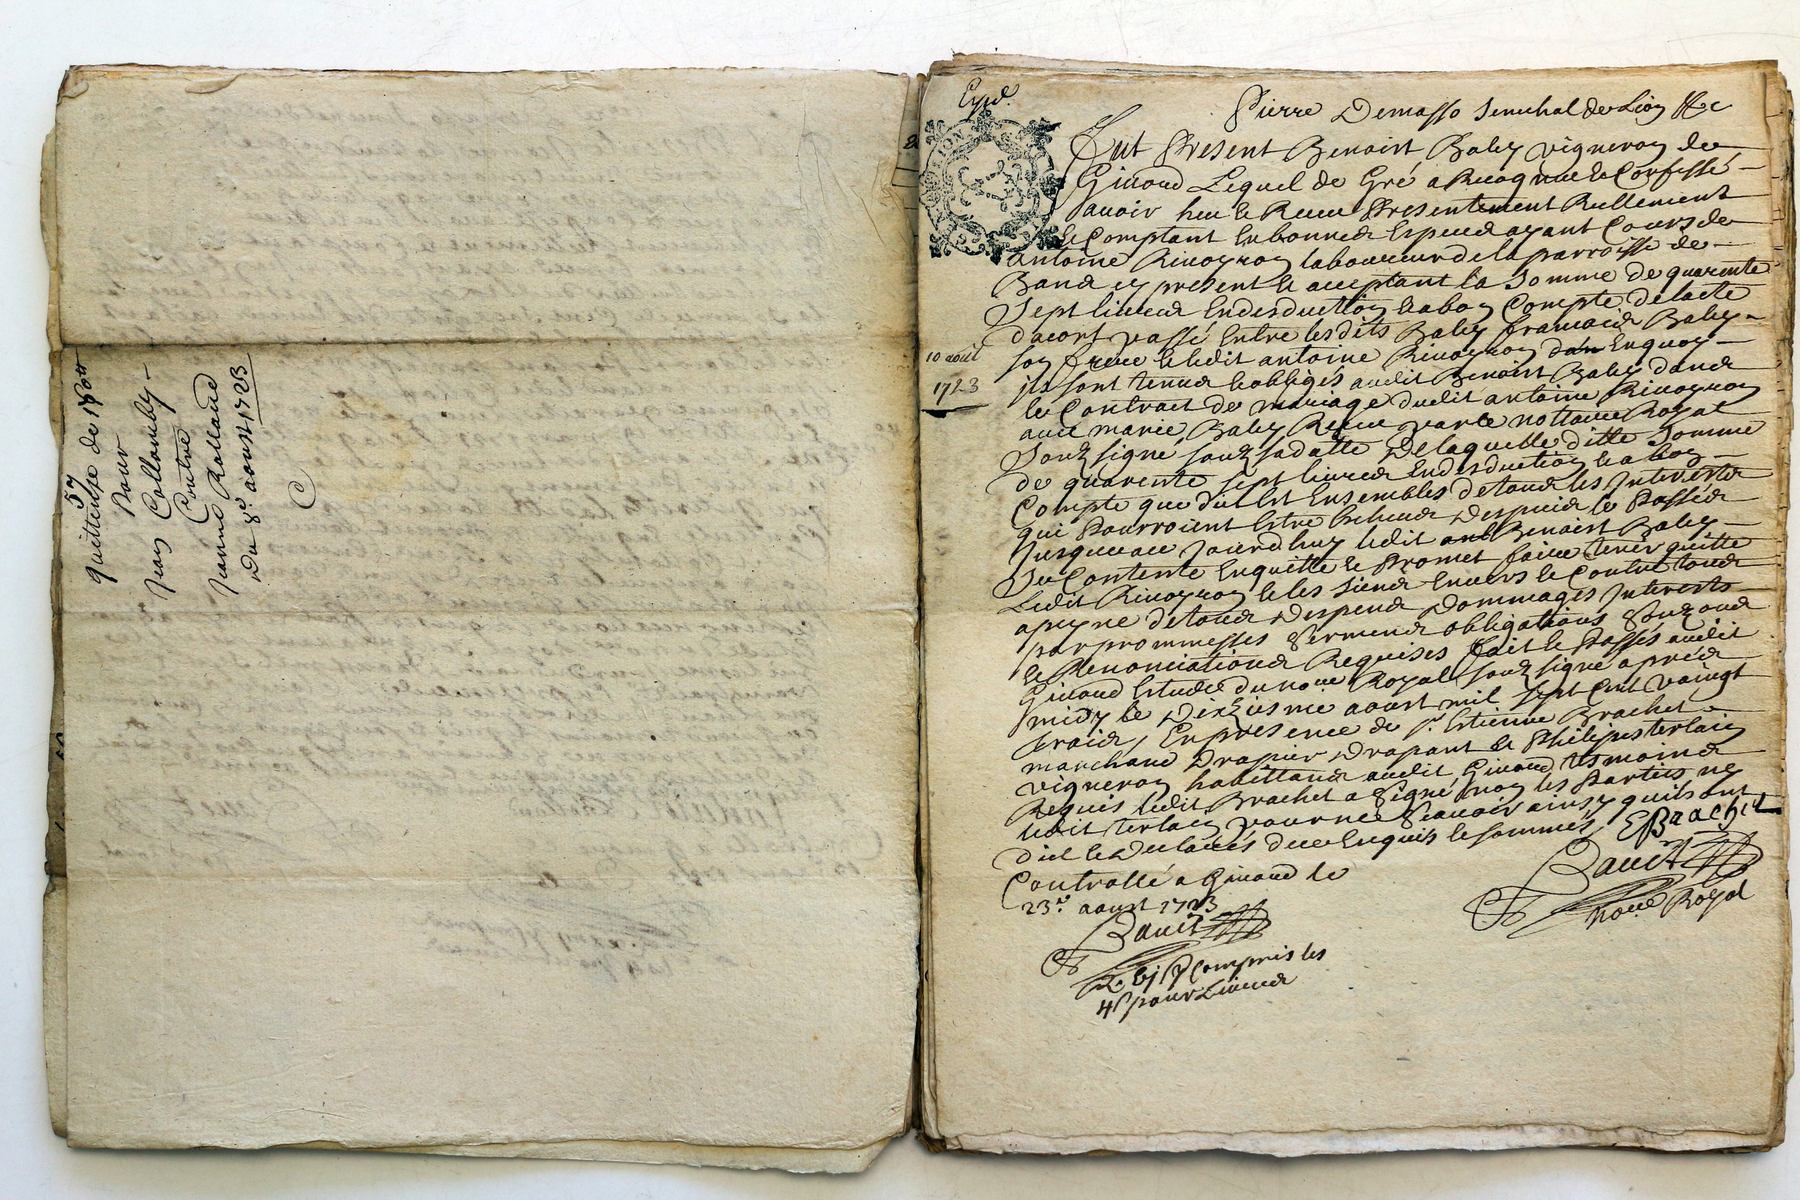 57
quittense de 180ᵗᵗ
pour
Jean Collomby
Contre
Jeanne Rolland
Du 8ᵉ aoust 1723
C
Expd.
LION
10 août
1723
Pierre Demasso Senechal de Lion &c
Fut Present Benoist Baley vigneron de
Givord Lequel de Gré a Recognue & Confessé
avoir heu & Receu Presentement Rellement
& Comptant en bonnes Especes ayant Cours de
antoine Rivoyron laboureur de la parroisse de
Bans cy present & acceptant la Somme de quarente
Sept livres en desduction & a bon Compte de lacte
dacort passé Entre lesdits Baley francois Baley
son frere & ledit antoine Rivoyron dans Enquoy
ils sont tenus & obligés audit Benoist Baley dans
le Contract de mariage dudit antoine Rivoyron
avec marie Baley Receu par le nottaire Royal
Soubsigné soubs sa datte De laquelle ditte Somme
de quarente sept livres en desduction & a bon
Compte que dit Est Ensembles de tous les Interests
qui Pourroient Estre Escheus Despuis le Passés
Jusques au Jourdhuy ledit Benoist Baley
Se Contente Enquitte & Promet faire tenir quitte
Ledit Rivoyron & les Siens Envers & Contre tous
a peyne de tous Despens Dommages Interests
par prommesses Sermens obligations
& Renonciations Requises fait & Passés audit
Givord Estude du noᵣₑ Royal soubsigné après
midy le Dixiesme aoust mil sept Cent vaingt
trois, En presence de sʳ. Estienne Brachet
marchand Drapier Drapant & Philipe terlain
vigneron habittans audit Givord tesmoins
Requis ledit Brachet a Signé non les Parties ny
ledit terlain pour ne Scavoir ainsy quils ont
dit & Declarés de ce Enquis & sommés, EBrachet
Controllé a Givord le
23ᵉ. aoust 1723
noʳᵉ Royal
Compris les
4ˢ pour Livres